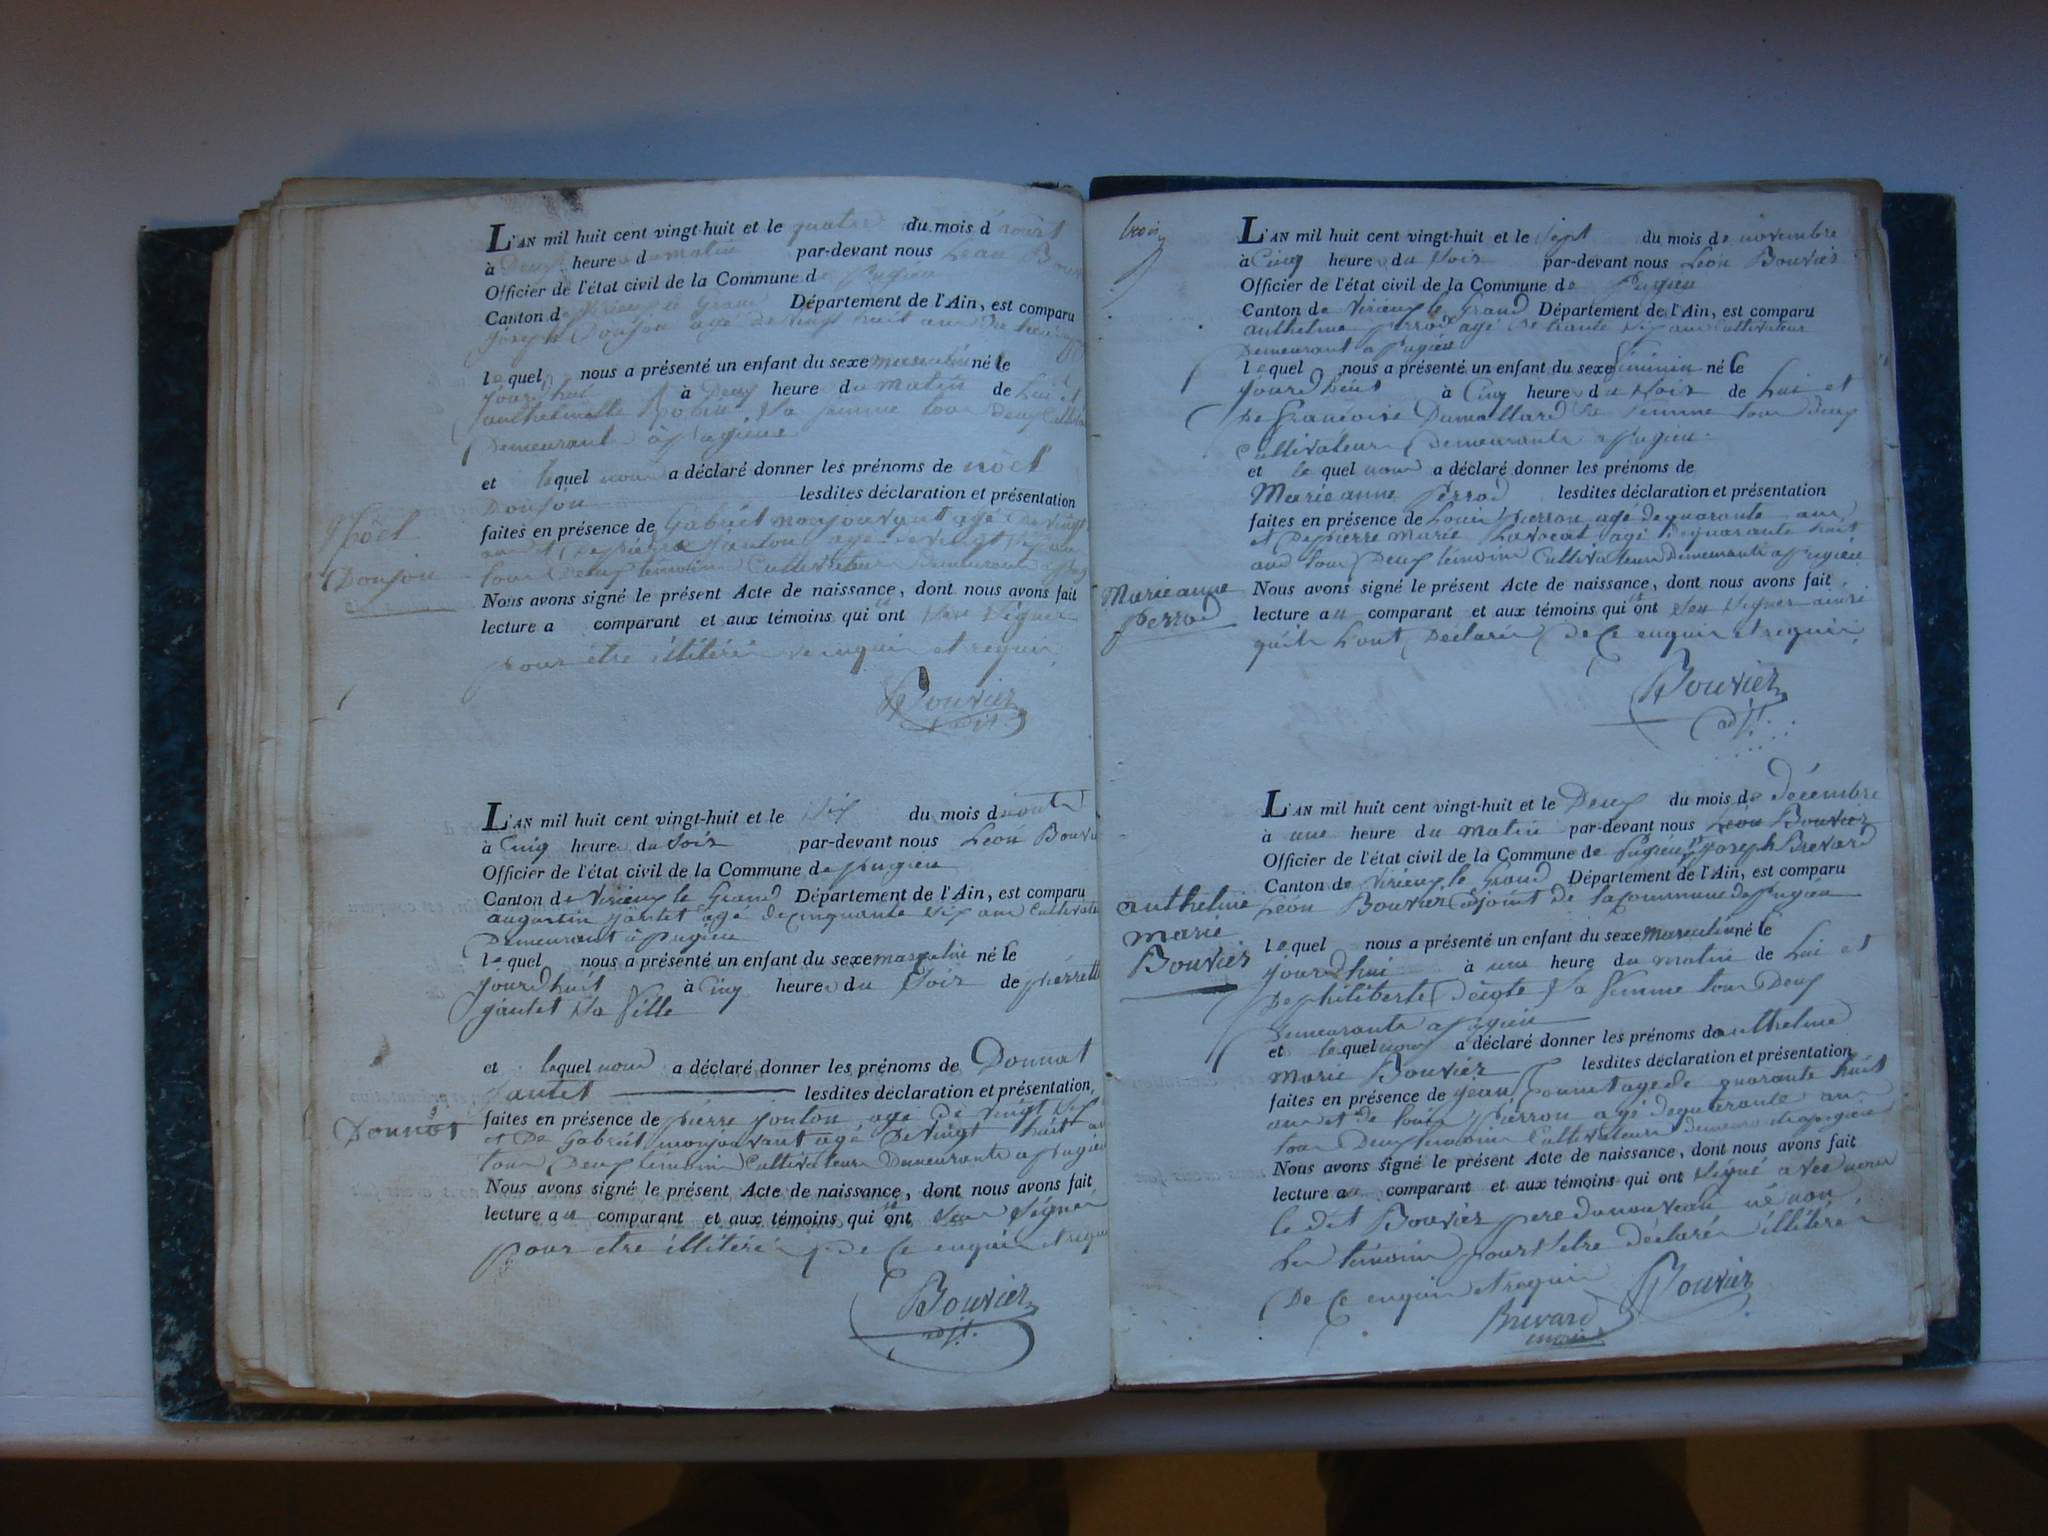 L'AN mil huit cent vingt-huit et le quatre du mois d'aoust
à Deux heure du matin par-devant nous Léon Bouv
Officier de l'état civil de la Commune de Pugieu
Canton de Virieux le Grand Département de l'Ain, est comparu
joseph Donjon agé de vingt huit ans
lequel nous a présenté un enfant du sexe masculin né le
jourdhui à Deux heure du matin de Lui et
anthelmette Robin Sa femme tous deux
Demeurant à Pugieu
et lequel nous a déclaré donner les prénoms de nöel
Donjon lesdites déclaration et présentation
faites en présence de Gabriel monjouvant agé de vingt
ans et De pierre agé de vingt
tous Deux temoins Cultivateurs Demeurants
Nous avons signé le présent Acte de naissance, dont nous avons fait
lecture a comparant et aux témoins qui ont Signer
pour etre illitérés enquis et requis
Bouvier
adjt
Nöel
Donjon
L'AN mil huit cent vingt-huit et le Six du mois d'aout
à Cinq heure du Soir par-devant nous Léon Bouvie
Officier de l'état civil de la Commune de pugieu
Canton de Virieux le Grand Département de l'Ain, est comparu
augustin jantet agé de cinquante Six ans Cultivate
Demeurant à pugieu
lequel nous a présenté un enfant du sexe masculin né le
jourdhuit à Cinq heure du Soir de pierrette
jantet Sa fille
et lequel nous a déclaré donner les prénoms de Donnat
jantet lesdites déclaration et présentation,
faites en présence de pierre agé De vingt Six
et De Gabriel monjouvant agé De vingt huit an
tous Deux témoins Cultivateurs Demeurants a Pugieu
Nous avons signé le présent Acte de naissance, dont nous avons fait
lecture au comparant et aux témoins qui ont Signer
pour etre illitérés De Ce enquis et requis
Bouvier
adjt.
Donnat
trois
L'AN mil huit cent vingt-huit et le Sept du mois de novembre
à Cinq heure du Soir par-devant nous Léon Bouvier
Officier de l'état civil de la Commune de Pugieu
Canton de Virieux le Grand Département de l'Ain, est comparu
anthelme perrod agé de trante Six ans Cultivateur
Demeurant a pugieu
lequel nous a présenté un enfant du sexe féminin né le
jourdhuit à Cinq heure du Soir de Lui et
De francoise Dumollard Sa femme tous deux
Cultivateurs Demeurants a pugieu
et lequel nous a déclaré donner les prénoms de
Marie anne perrod lesdites déclaration et présentation
faites en présence de Louis pierron agé de quarante ans
et De pierre marie Lavocat agé De quarante huit
ans tous Deux témoins Cultivateurs Demeurants a pugieu
Nous avons signé le présent Acte de naissance, dont nous avons fait
lecture au comparant et aux témoins qui ont Signer ainsi
quils Lont Declarés De Ce enquis et requis
Bouvier
adjt.
Marie anne
perrod
L'AN mil huit cent vingt-huit et le Deux du mois de Décembre
à une heure du matin par-devant nous Léon Bouvier
Officier de l'état civil de la Commune de Pugieu joseph Brevard
Canton de Virieux le Grand Département de l'Ain, est comparu
Léon Bouvier adjoint de la Commune de Pugieu
lequel nous a présenté un enfant du sexe masculin né le
jourdhui à une heure du matin de Lui et
De philiberte Sa femme tous Deux
Demeurants a pugieu
et lequel nous a déclaré donner les prénoms de anthelme
Marie Bouvier lesdites déclaration et présentation
faites en présence de jean agé de quarante huit
ans et de Louis pierron agé de quarante ans
tous Deux témoins Cultivateurs demeurants a pugieu
Nous avons signé le présent Acte de naissance, dont nous avons fait
lecture au comparant et aux témoins qui ont Signé avec nous
le dit Bouvier pere du nouveau né non
Les témoins pour Setre déclarés illitérés
De Ce enquis et requis
Bouvier
Brevard
maire
anthelme
marie
Bouvier